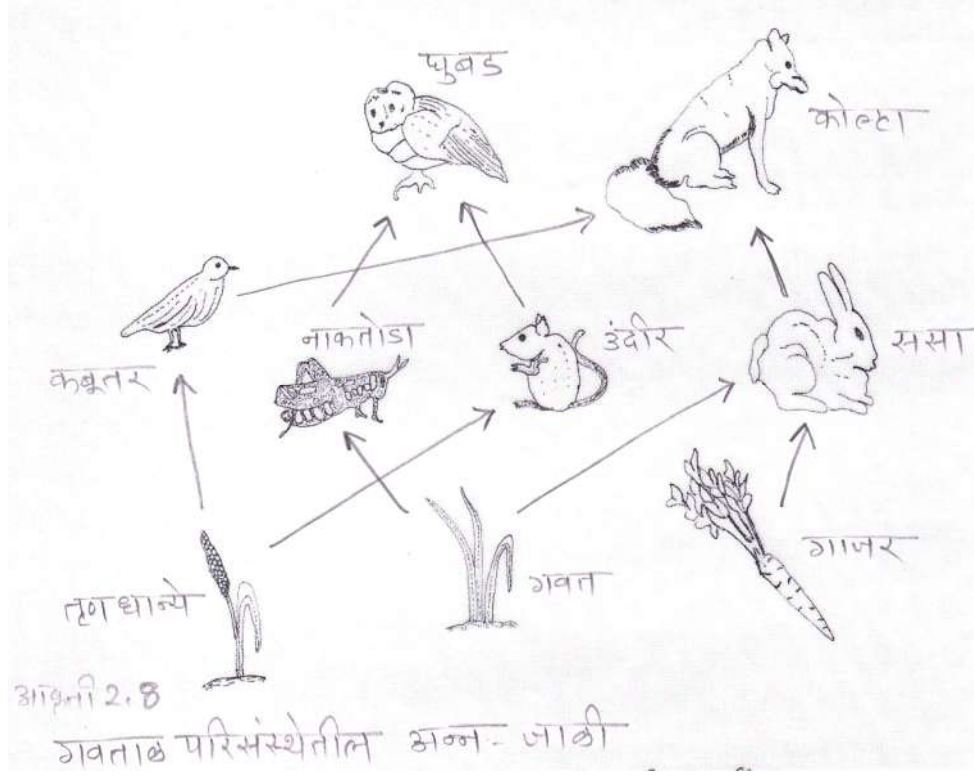 घुबड
कोल्हा
कबूतर
नाकतोडा
उंदीर
ससा
तृणधान्ये
गवत
गाजर
आकृती 2.8
गवताळ परिसंस्थेतील अन्न-जाळी